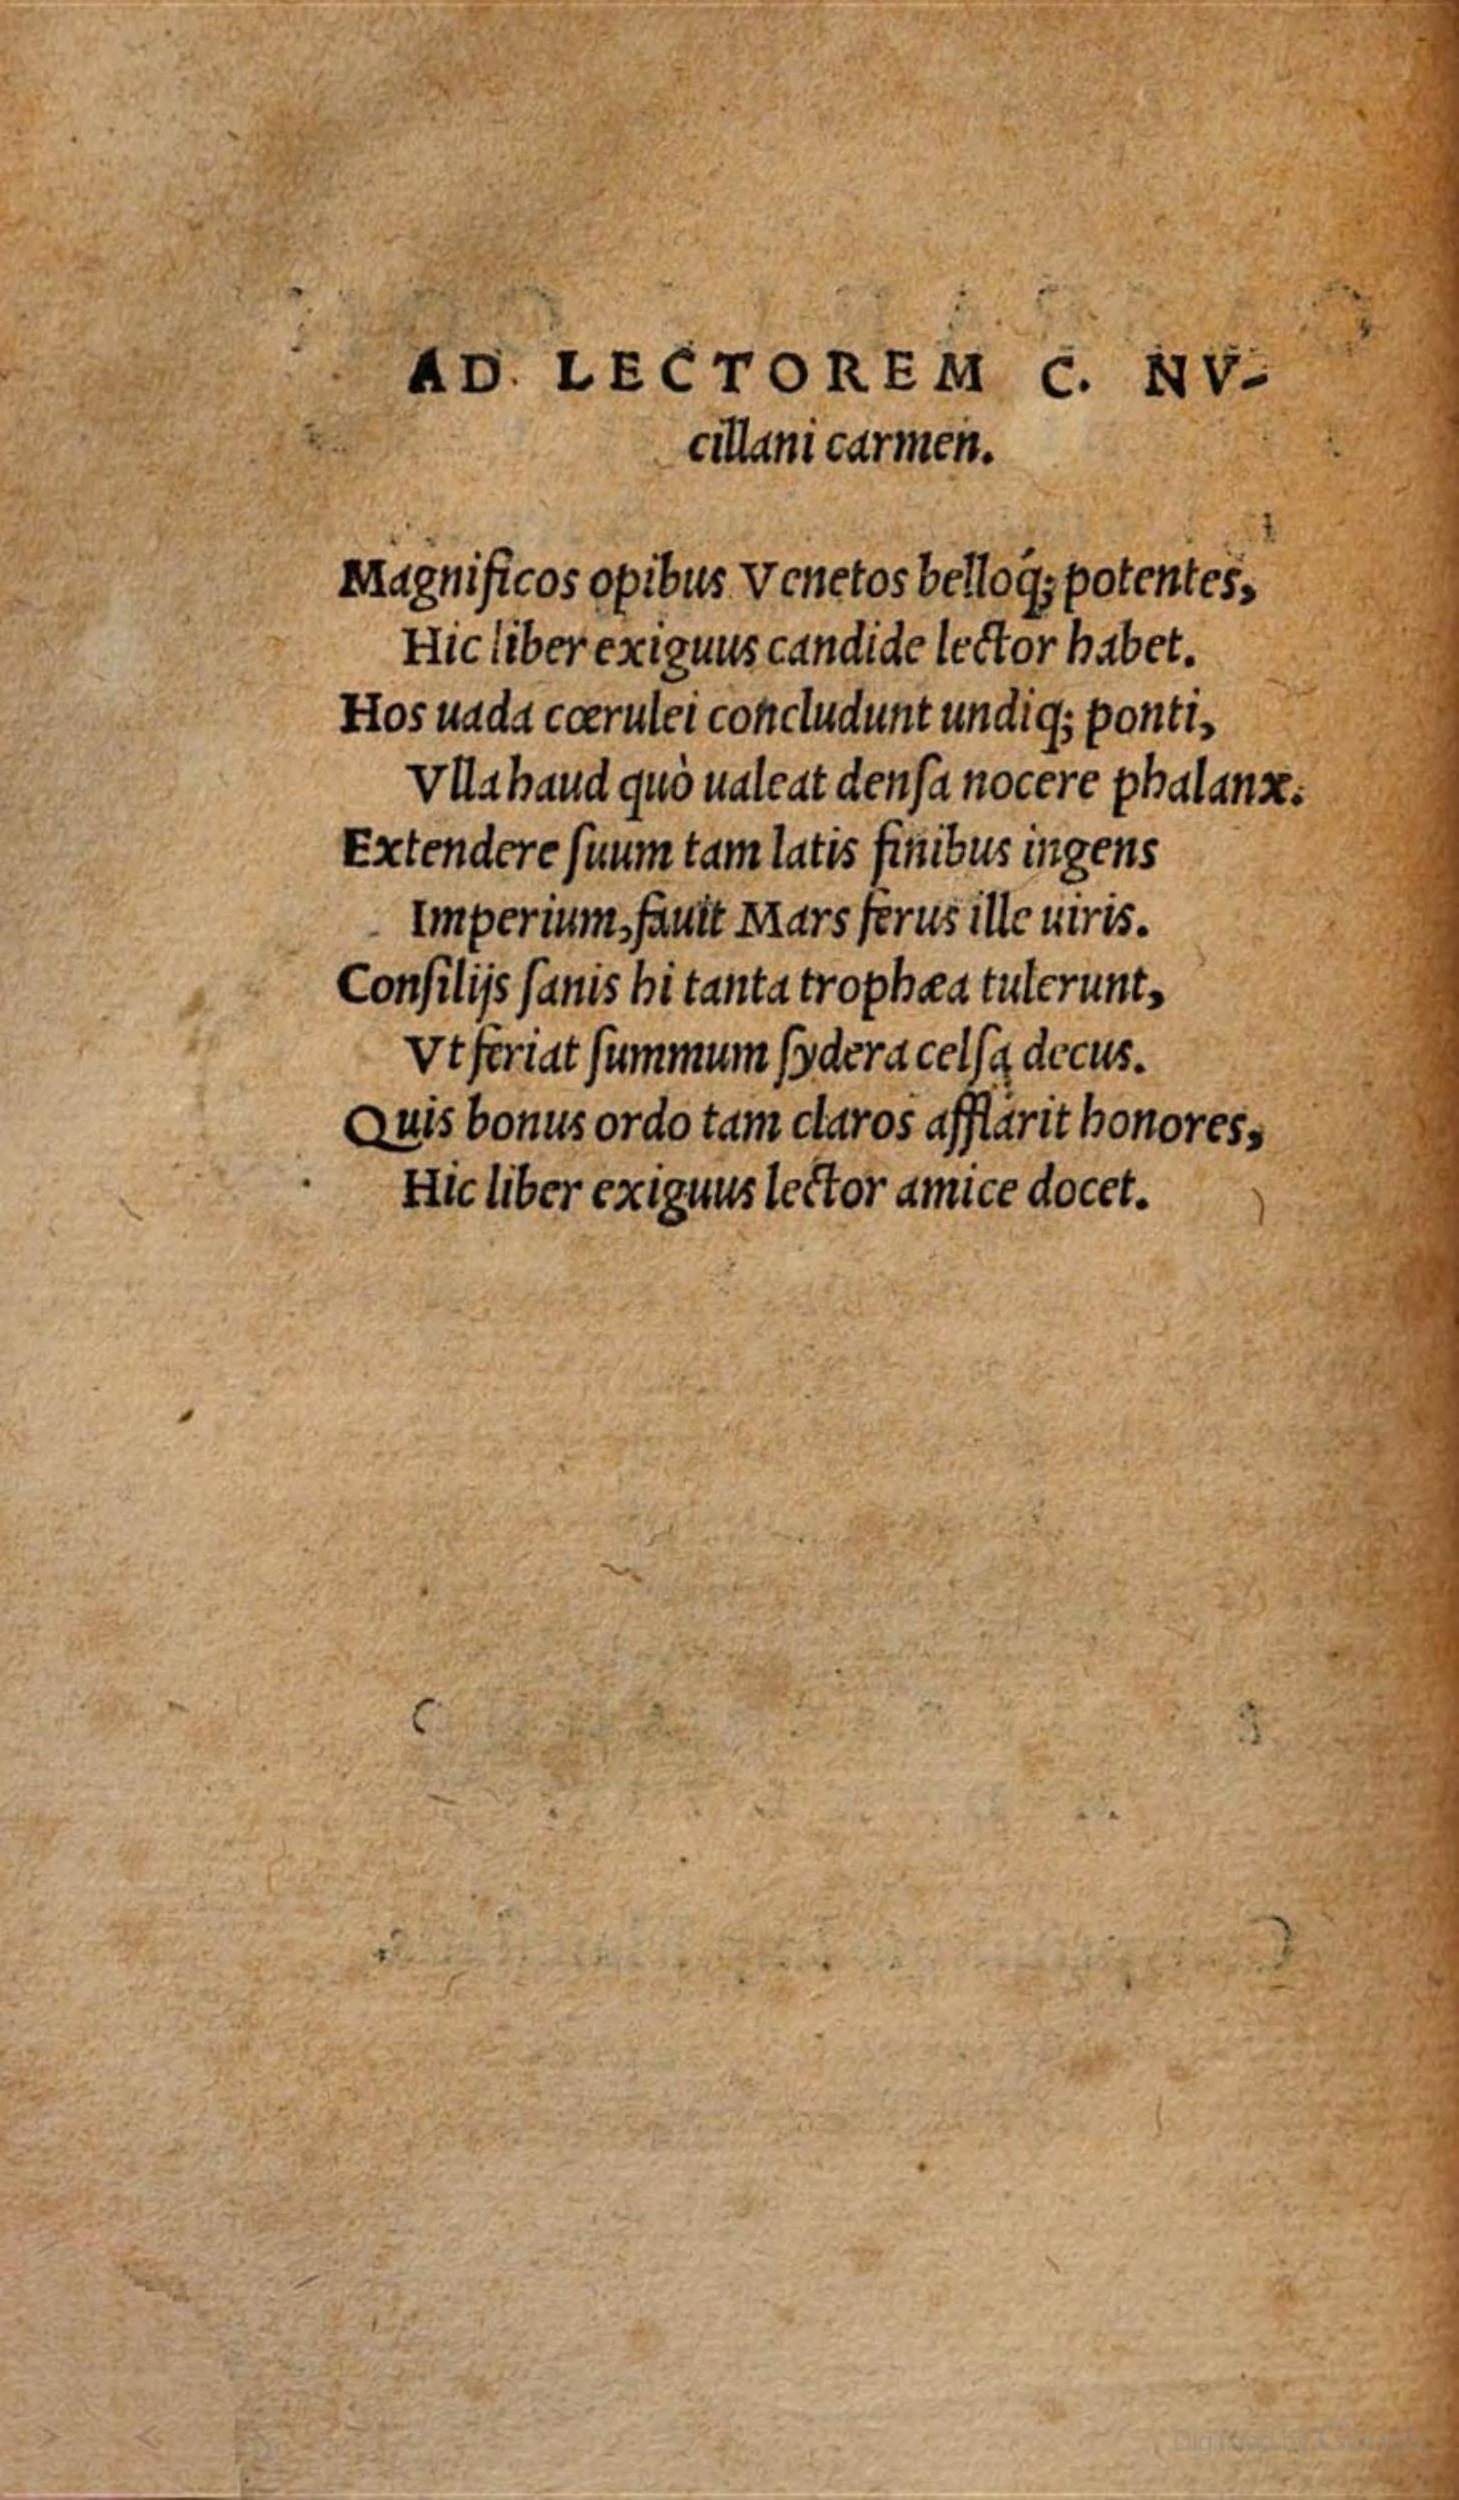 AD LECTOREM C. NV-
cillani carmen.
Magnificos opibus Venetos belloq́; potentes,
Hic liber exiguus candide lector habet.
Hos uada cœrulei concludunt undiq; ponti,
Vlla haud quò ualeat denſa nocere phalanx.
Extendere ſuum tam latis finibus ingens
Imperium, fauit Mars ferus ille uiris.
Conſilijs ſanis hi tanta trophæa tulerunt,
Vt feriat ſummum ſydera celſa decus.
Quis bonus ordo tam claros afflarit honores,
Hic liber exiguus lector amice docet.
Digitized by Google